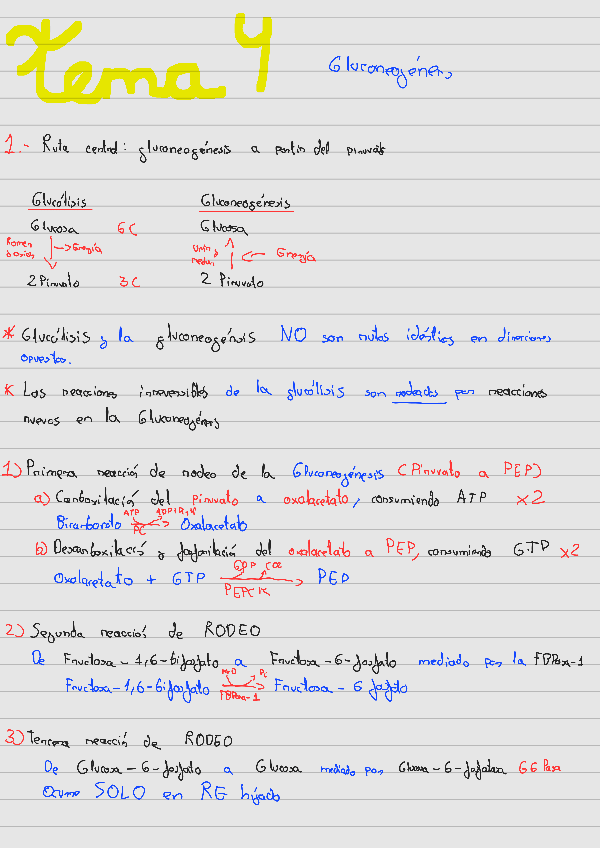 Tema 4
Gluconeogénesis
1.- Ruta central: gluconeogénesis a partir del piruvato
Glucólisis Gluconeogénesis
Glucosa 6C Glucosa
→ Energía ← Energía
2 Piruvato 3C 2 Piruvato
* Glucólisis y la gluconeogénesis NO son rutas idénticas en direcciones
opuestas.
* Las reacciones irreversibles de la glucólisis son rodeadas por reacciones
nuevas en la Gluconeogénesis
1) Primera reacción de rodeo de la Gluconeogénesis (Piruvato a PEP)
a) Carboxilación del piruvato a oxalacetato, consumiendo ATP x2
ATP ADP+Pi+H
Bicarbonato → Oxalacetato
PC
b) Descarboxilación y fosforilación del oxalacetato a PEP, consumiendo GTP x2
GDP CO2
Oxalacetato + GTP → PEP
PEPCK
2) Segunda reacción de RODEO
De Fructosa-1,6-bifosfato a Fructosa-6-fosfato mediado por la FBPasa-1
H2O Pi
Fructosa-1,6-bifosfato → Fructosa-6 fosfato
FBPasa-1
3) Tercera reacción de RODEO
De Glucosa-6-fosfato a Glucosa mediado por Glucosa-6-fosfatasa G6Pasa
Ocurre SOLO en RE hígado